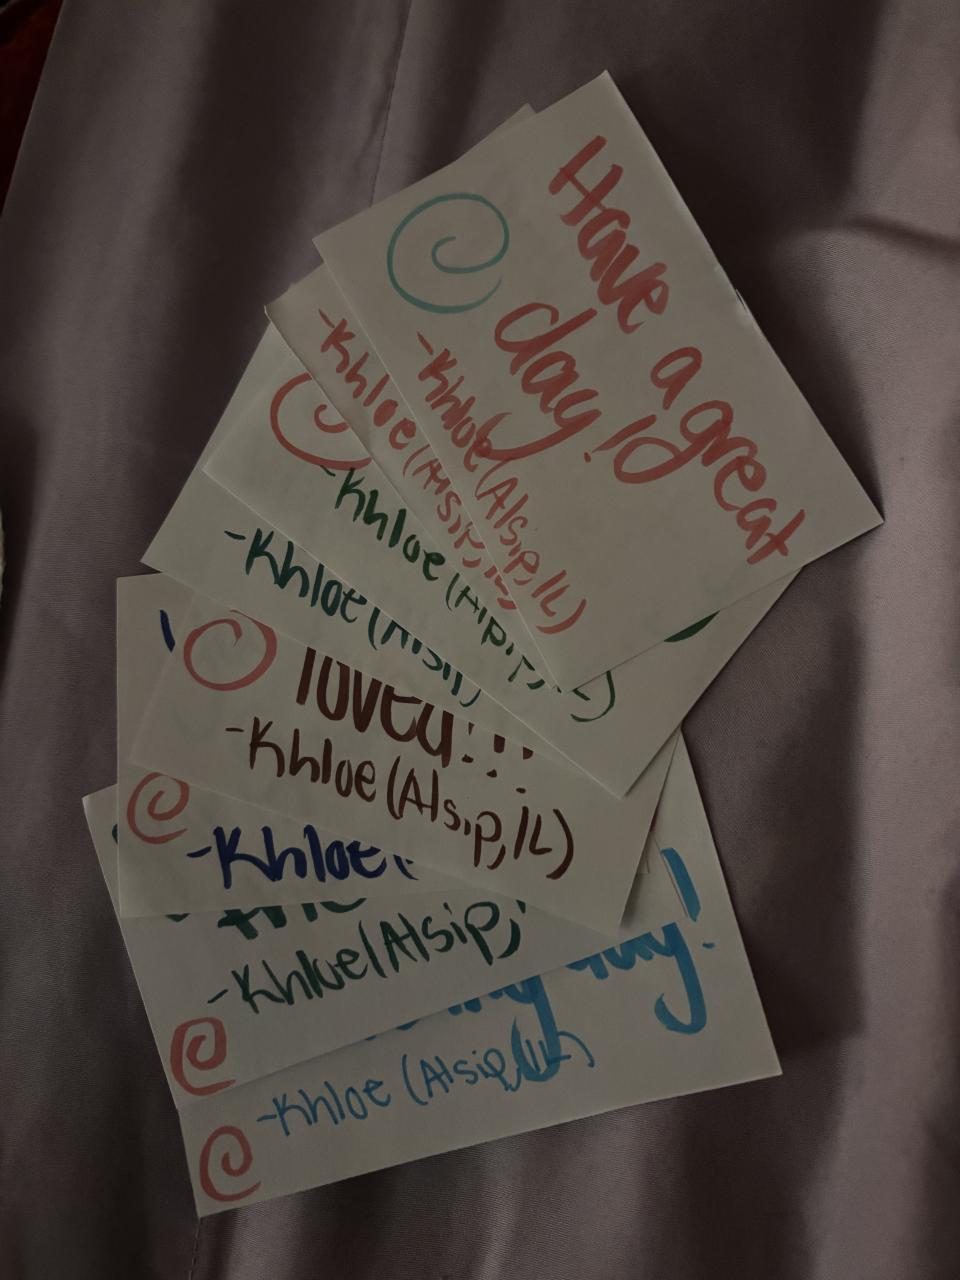 Have a great
day!
-Khloe (Alsip, IL)
-Khloe (Alsip, IL)
-Khloe (Alsip, IL)
-Khloe (Alsip,
loved!!!
-Khloe (Alsip, IL)
-Khloe (
the
-Khloe (Alsip,
day!
-Khloe (Alsip, IL)